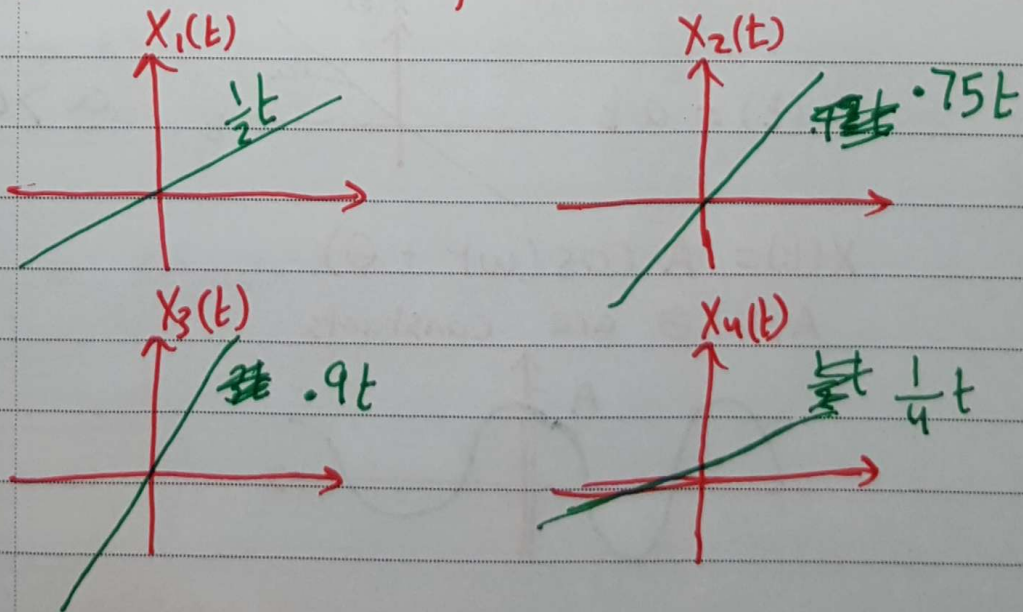 X₁(t)
½t
X₂(t)
.75t
X₃(t)
.9t
X₄(t)
¼t